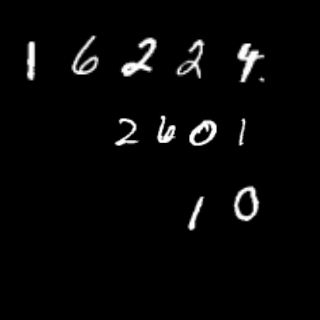 16224
2601
10